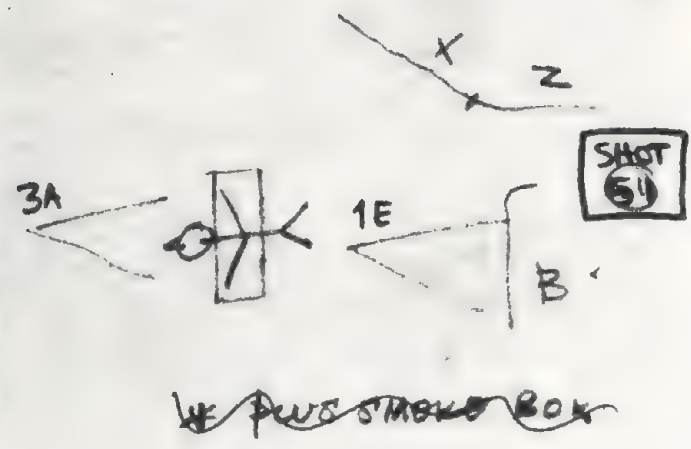 X
Z
SHOT
51
3A
1E
B
PLUS SMOKE BOX